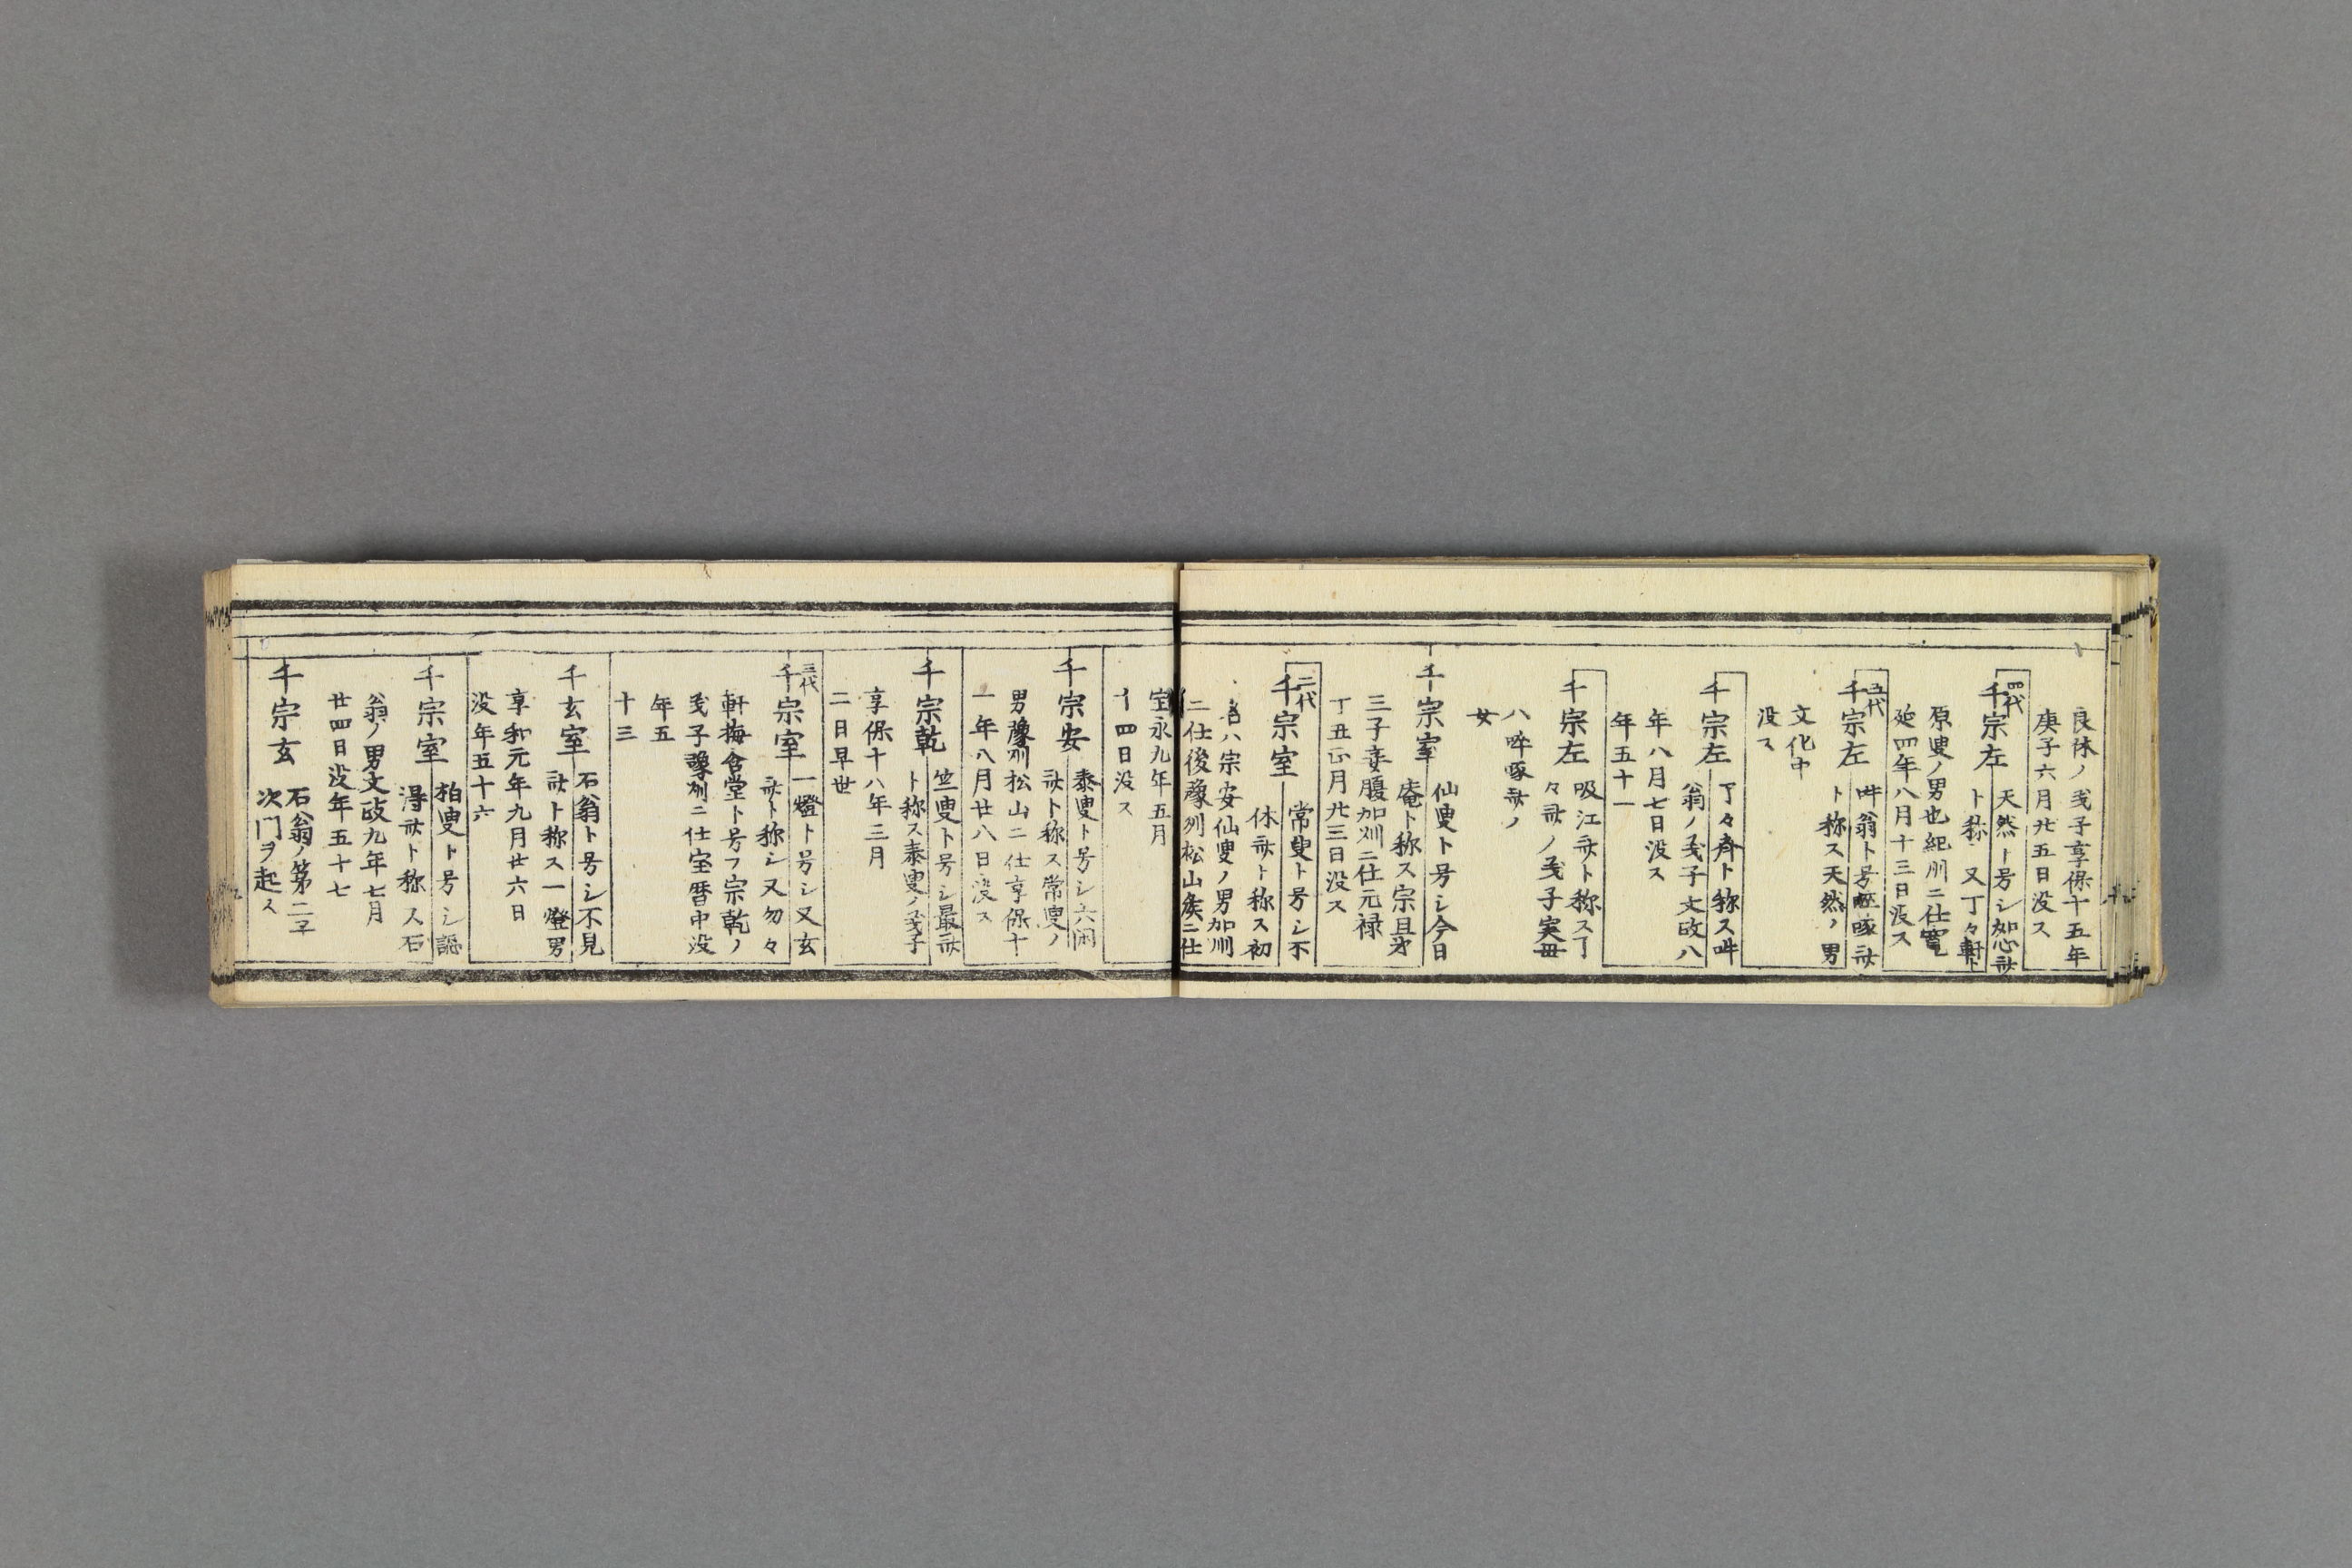 良休ノ義子享保十五年
庚子六月廿五日没ス
四代
千宗左
天然ト号シ如心斎
ト称 又丁々軒ト
原叟ノ男也紀州ニ仕寛
延四年八月十三日没ス
五代
千宗左
啐翁ト号啐啄斎
ト称ス天然ノ男
文化中
没ス
千宗左
了々斎ト称ス啐
翁ノ義子文政八
年八月七日没ス
年五十一
千宗左
吸江斎ト称ス丁
々斎ノ義子実母
八啐啄斎ノ
女
千宗室
仙叟ト号シ今日
庵ト称ス宗旦才
三子妾腹加州ニ仕元禄
丁丑正月廿三日没ス
二代
千宗室
常叟ト号シ不
休斎ト称ス初
名ハ宗安仙叟ノ男加州
ニ仕後豫列松山侯ニ仕
宝永九年五月
十四日没ス
千宗安
泰叟ト号シ六閑
斎ト称ス常叟ノ
男豫州松山ニ仕享保十
一年八月廿八日没ス
千宗乾
竺叟ト号シ最斎
ト称ス泰叟ノ義子
享保十八年三月
二日早世
三代
千宗室
一燈ト号シ又玄
斎ト称シ又勿々
軒梅舎堂ト号フ宗乾ノ
義子豫州ニ仕宝暦中没
年五
十三
千玄室
石翁ト号シ不見
斎ト称ス一燈男
享和元年九月廿六日
没年五十六
千宗室
柏叟ト号シ認
得斎ト称ス石
翁ノ男文政九年七月
廿四日没年五十七
千宗玄
石翁ノ第二子
次門ヲ起ス